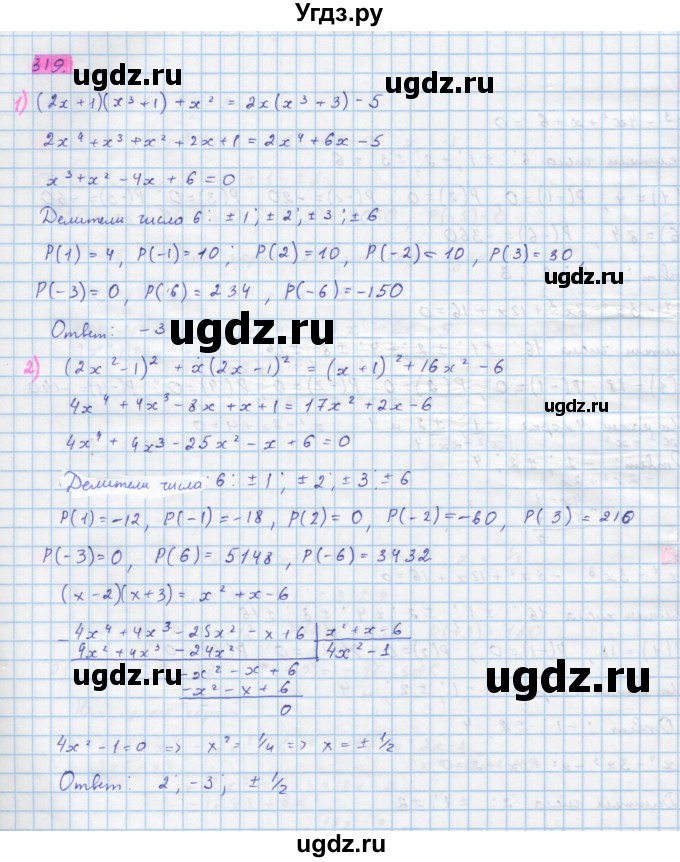 Угдз.ру
319.
ugdz.ru
ugdz.ru
1) (2x+1)(x³+1)+x² = 2x(x³+3)-5
2x⁴+x³+x²+2x+1=2x⁴+6x-5
x³+x²-4x+6=0
Делители число 6: ±1; ±2; ±3; ±6
P(1)=4, P(-1)=10; P(2)=10, P(-2)=10, P(3)=30,
ugdz.ru
P(-3)=0, P(6)=234, P(-6)=-150
Ответ: -3
ugdz.ru
2) (2x²-1)²+x(2x-1)²=(x+1)²+16x²-6
4x⁴+4x³-8x+x+1=17x²+2x-6
4x⁴+4x3-25x²-x+6=0
ugdz.ru
Делители числа 6: ±1; ±2; ±3; ±6
P(1)=-12, P(-1)=-18, P(2)=0, P(-2)=-60, P(3)=210
P(-3)=0, P(6)=5148, P(-6)=3432
(x-2)(x+3)=x²+x-6
4x⁴+4x³-25x²-x+6 | x²+x-6
4x²+4x³-24x² | 4x²-1
-x²-x+6
-x²-x+6
0
ugdz.ru
ugdz.ru
4x²-1=0 => x²=1/4 => x=±1/2
Ответ: 2; -3; ±1/2
ugdz.ru
Угдз.ру